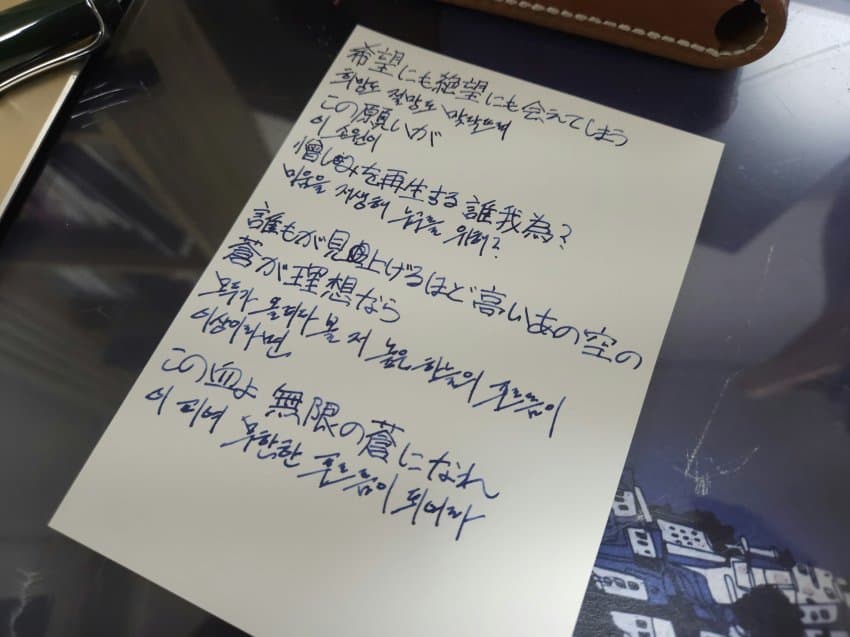 希望にも絶望にも会えてしまう
희망도 절망도 맞닥뜨려
この願いが
이 소원이
憎しみを再生する誰我為?
미움을 재생해 누구를 위해?
誰もが見上げるほど高いあの空の
蒼が理想なら
모두가 올려다 볼 저 높은 하늘의 푸르름이
이상이라면
この血よ 無限の蒼になれ
이 피여 무한한 푸르름이 되어라